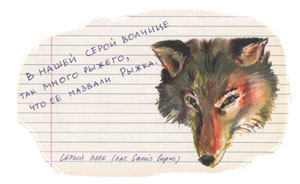 В НАШЕЙ СЕРОЙ ВОЛЧИЦЕ
ТАК МНОГО РЫЖЕГО,
ЧТО ЕЕ НАЗВАЛИ РЫЖКА.
СЕРЫЙ ВОЛК (ЛАТ. Canis lupus)